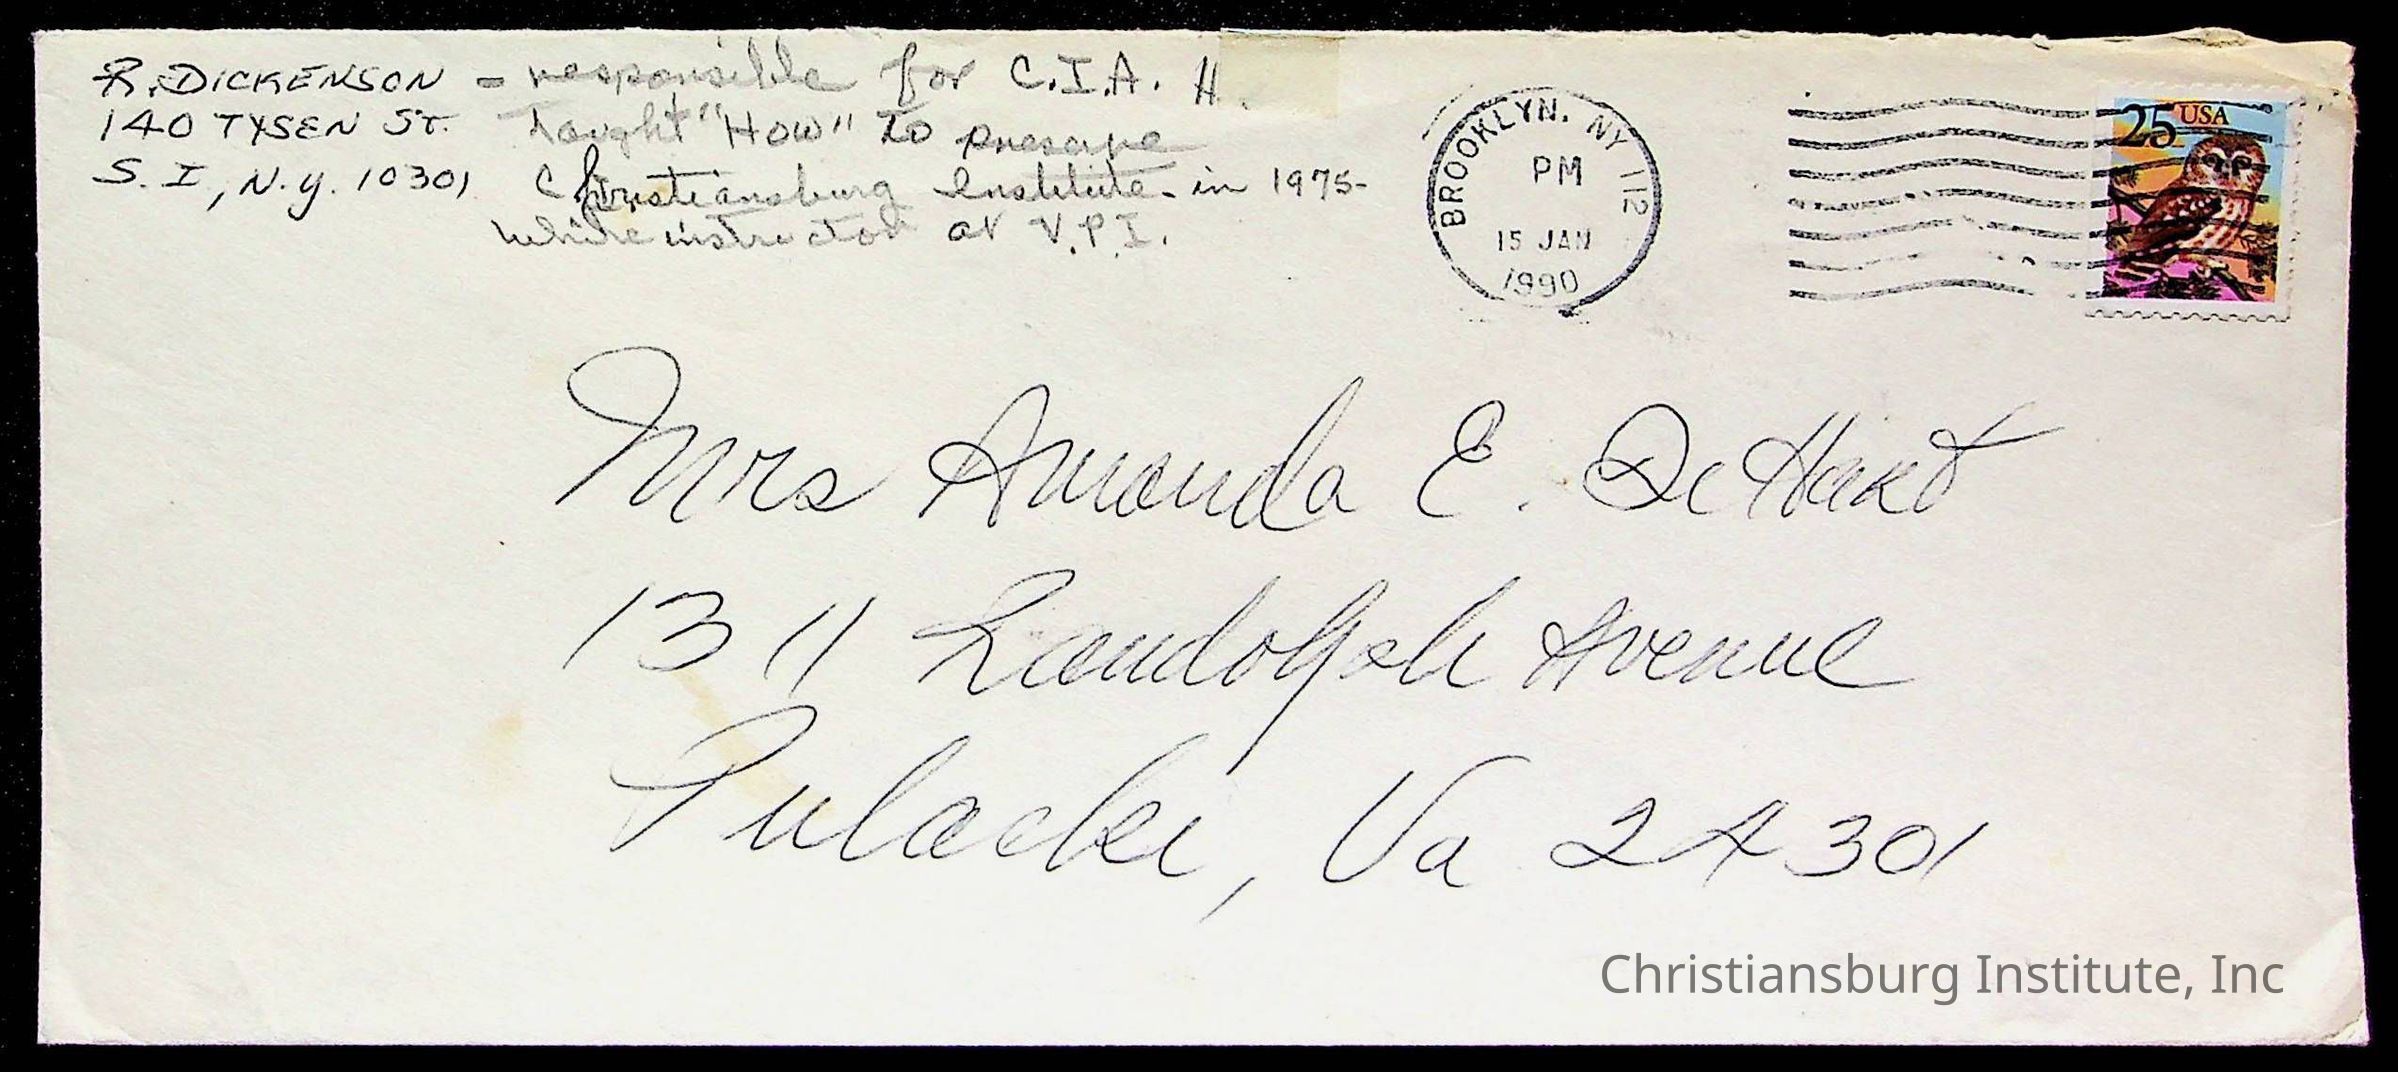 R. DICKENSON - responsible for C.I.A. H.
140 TYSEN ST. taught "How" to preserve
S. I, N.Y. 10301 Christiansburg Institute - in 1975-
while instructor at V.P.I.
BROOKLYN. NY 112
PM
15 JAN
1990
25 USA
Mrs Amanda E. DeHart
1311 Randolph Avenue
Pulaski, Va 24301
Christiansburg Institute, Inc